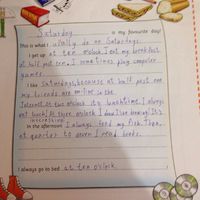 Saturday is my favourite day!
This is what I usually do on Saturdays.
I get up at ten o'clock. I eat my breakfast
at half past ten. I sometimes play computer
games.
I like Saturdays, because at half past one
my friends are on-line in the
Internet. At two o'clock it's lunchtime. I always
eat lunch! At three o'clock I draw. I love drawing! It's
interesting.
In the afternoon I always feed my fish. Then,
at quarter to seven I read books.
I always go to bed at ten o'clock.